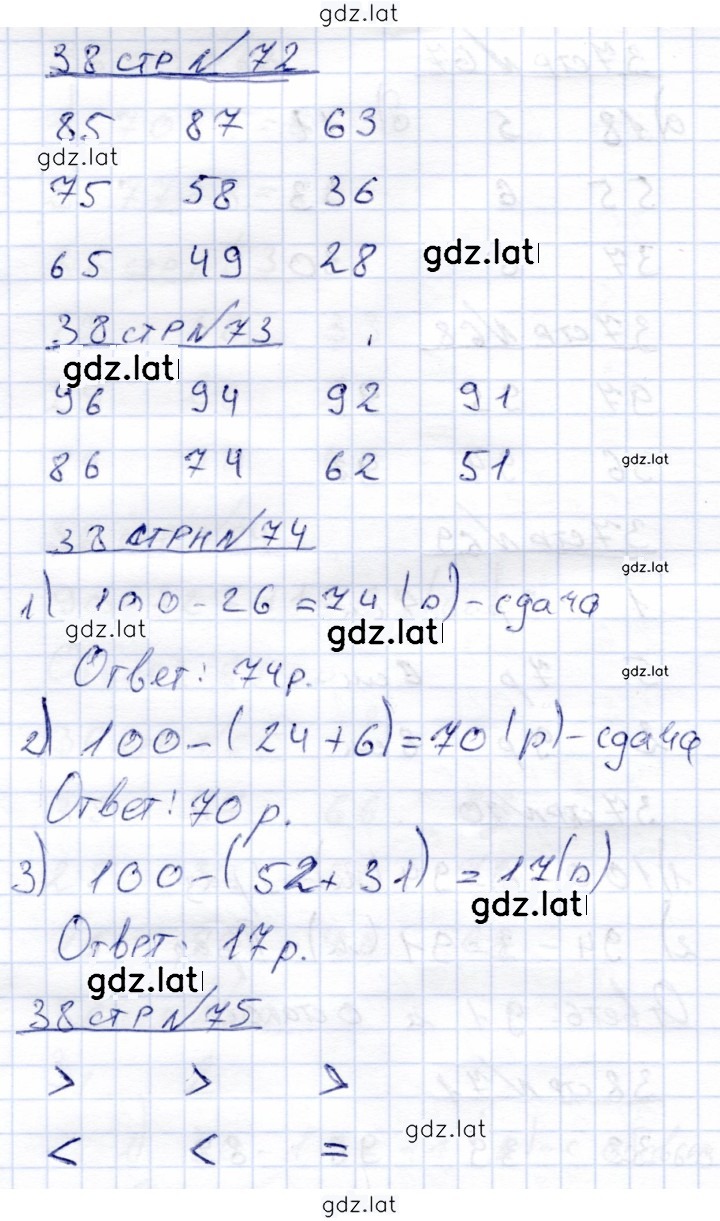 gdz.lat
38 стр № 72
85 87 63
gdz.lat
75 58 36
65 49 28 gdz.lat
38 стр № 73
gdz.lat
96 94 92 91
86 74 62 51 gdz.lat
38 стрн № 74
gdz.lat
1) 100-26=74 (р)-сдача
gdz.lat gdz.lat
Ответ: 74р. gdz.lat
2) 100-(24+6)=70 (р)-сдача
Ответ: 70 р.
3) 100-(52+31) = 17(р)
gdz.lat
Ответ: 17р.
gdz.lat
38 стр № 75
> > >
gdz.lat
< < =
gdz.lat